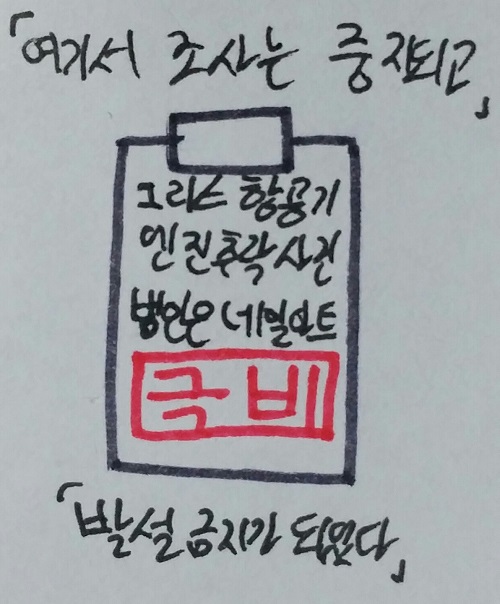 「여기서 조사는 중지되고」
그리스 항공기
엔진추락사건
범인은 네일아트
극비
「발설금지가 되었다」